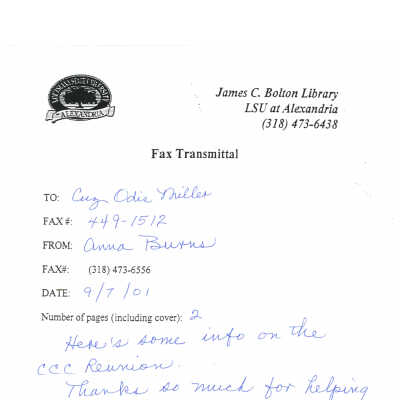 LOUISIANA STATE UNIVERSITY
ALEXANDRIA
James C. Bolton Library
LSU at Alexandria
(318) 473-6438
Fax Transmittal
TO: Cuz Odis Miller
FAX #: 449-1512
FROM: Anna Burns
FAX#: (318) 473-6556
DATE: 9/7/01
Number of pages (including cover): 2
Here's some info on the
CCC Reunion.
Thanks so much for helping